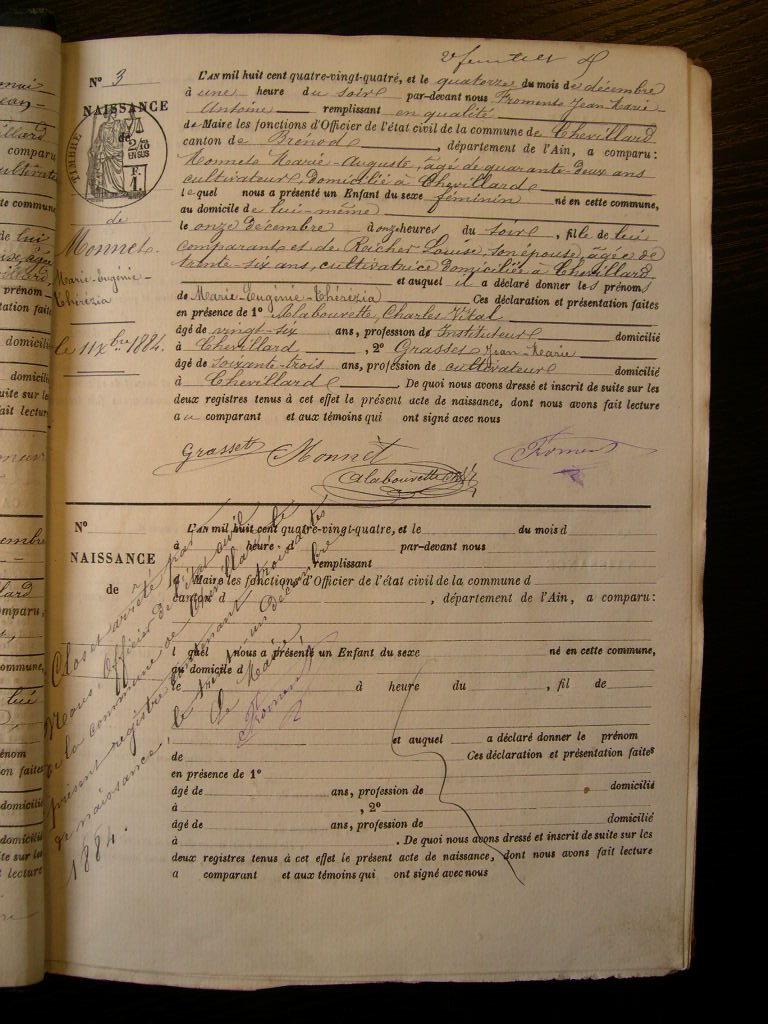 2e feuillet
N° 3
NAISSANCE
TIMBRE
2/10
EN SUS
F.
1
de
Monnet
Marie-Eugénie-
Thérézia
le 11 Xbre 1884.
L'AN mil huit cent quatre-vingt-quatre, et le quatorze du mois de décembre
à une heure du soir par-devant nous Froment Jean Marie
Antoine remplissant en qualité
de Maire les fonctions d'Officier de l'état civil de la commune de Chevillard
canton de Brénod, département de l'Ain, a comparu:
Monnet Marie-Auguste, âgé de quarante-deux ans
cultivateur domicilié à Chevillard
lequel nous a présenté un Enfant du sexe féminin né en cette commune,
au domicile de lui-même
le onze décembre à onze heures du soir, fille de lui
comparant et de Racher Louise, son épouse, âgée de
trente-six ans, cultivatrice domiciliée à Chevillard
et auquel il a déclaré donner les prénoms
de Marie-Eugénie-Thérézia Ces déclaration et présentation faites
en présence de 1° Alabouvette, Charles Vital
âgé de vingt-six ans, profession de Instituteur domicilié
à Chevillard, 2° Grasset Jean-Marie
âgé de soixante-trois ans, profession de cultivateur domicilié
à Chevillard. De quoi nous avons dressé et inscrit de suite sur les
deux registres tenus à cet effet le présent acte de naissance, dont nous avons fait lecture
au comparant et aux témoins qui ont signé avec nous
Grasset Monnet Froment
Alabouvette
N°
NAISSANCE
de
L'AN mil huit cent quatre-vingt-quatre, et le du mois d
à heure d par-devant nous
remplissant
d Maire les fonctions d'Officier de l'état civil de la commune d
canton d , département de l'Ain, a comparu:
l quel nous a présenté un Enfant du sexe né en cette commune,
au domicile d
le à heure du , fil de
et auquel a déclaré donner le prénom
de Ces déclaration et présentation faites
en présence de 1°
âgé de ans, profession de domicilié
à , 2°
âgé de ans, profession de domicilié
à . De quoi nous avons dressé et inscrit de suite sur les
deux registres tenus à cet effet le présent acte de naissance, dont nous avons fait lecture
a comparant et aux témoins qui ont signé avec nous
Clos et arrêté par
Nous, Officier de l'état civil
de la commune de Chevillard le
présent registre contenant trois actes
de naissance, le trente-un décembre
1884.
Le Maire,
Froment